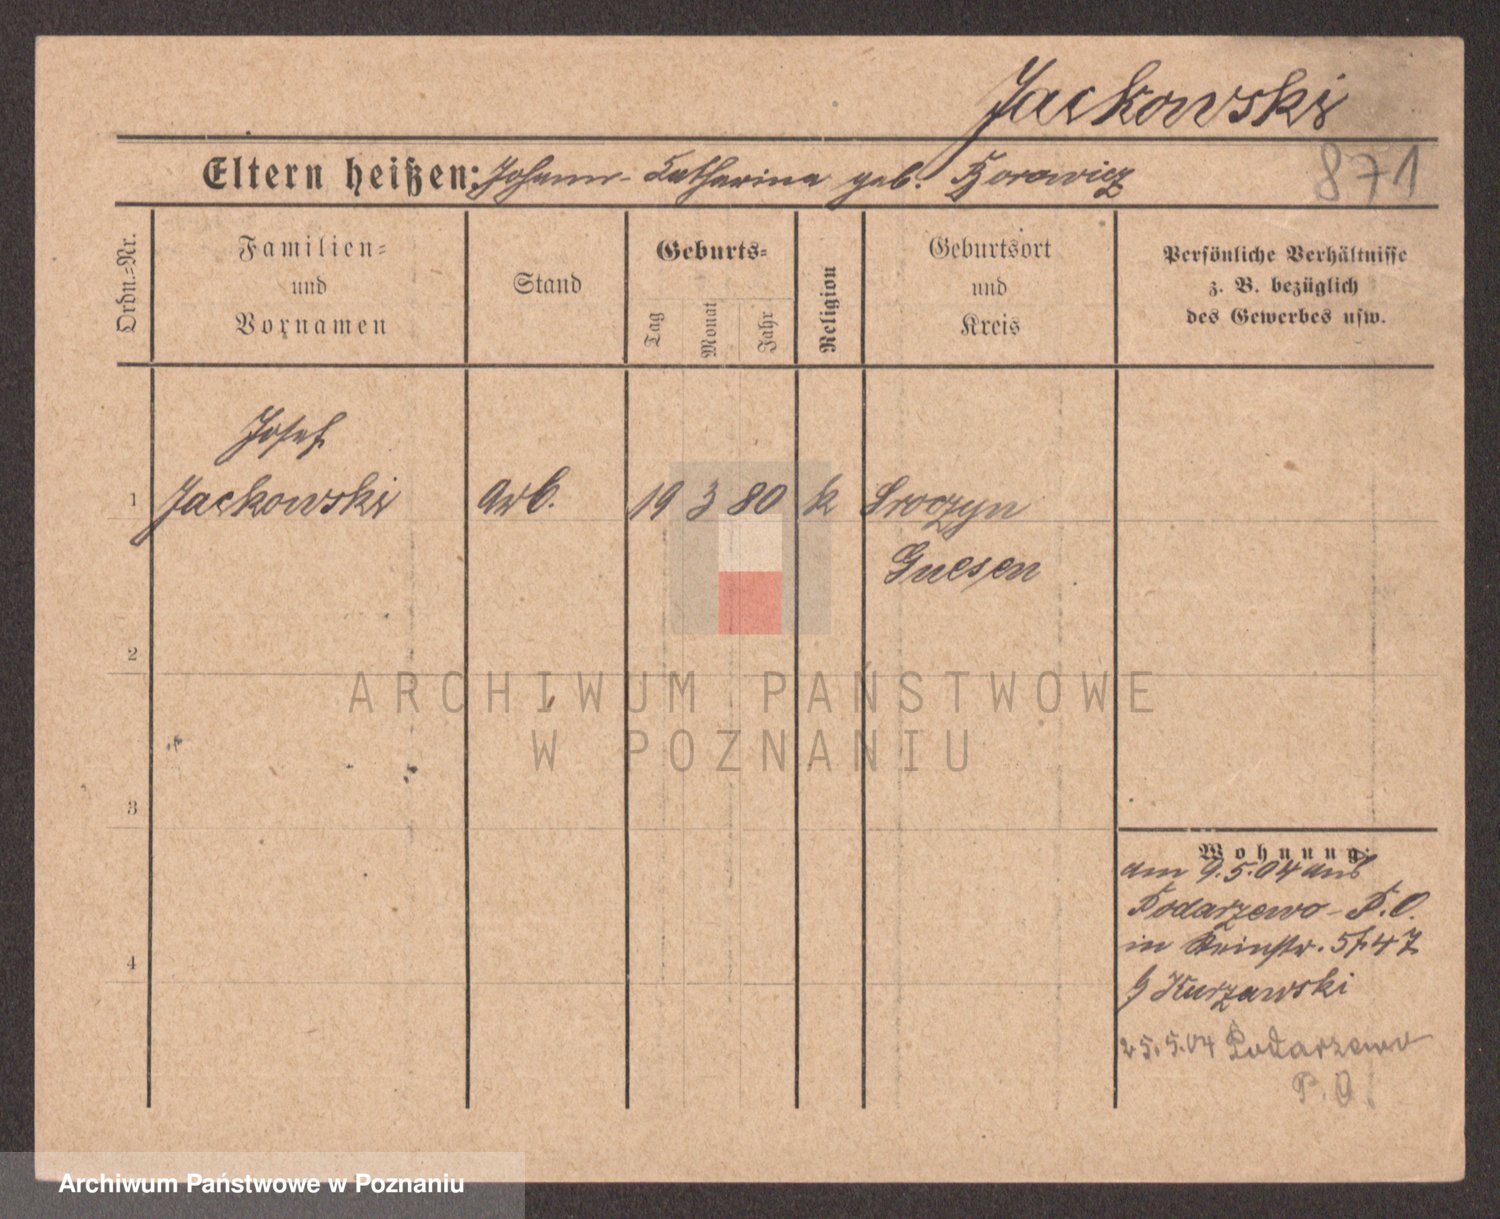 Jackowski
Eltern heißen: Johann - Katharina geb. Borowicz
871
Ordn.=Nr.
Familien=
und
Vornamen
Stand
Geburts=
Tag
Monat
Jahr
Religion
Geburtsort
und
Kreis
Persönliche Verhältnisse
z. B. bezüglich
des Gewerbes usw.
Josef
1 Jackowski Arb. 19 3 80 k Sroczyn
Gnesen
2
3
4
Wohnung:
am 9.5.04 aus
Podarzewo - P.O.
in
Kurzawski
25.5.04 Podarzewo
P.O.
ARCHIWUM PAŃSTWOWE
W POZNANIU
Archiwum Państwowe w Poznaniu